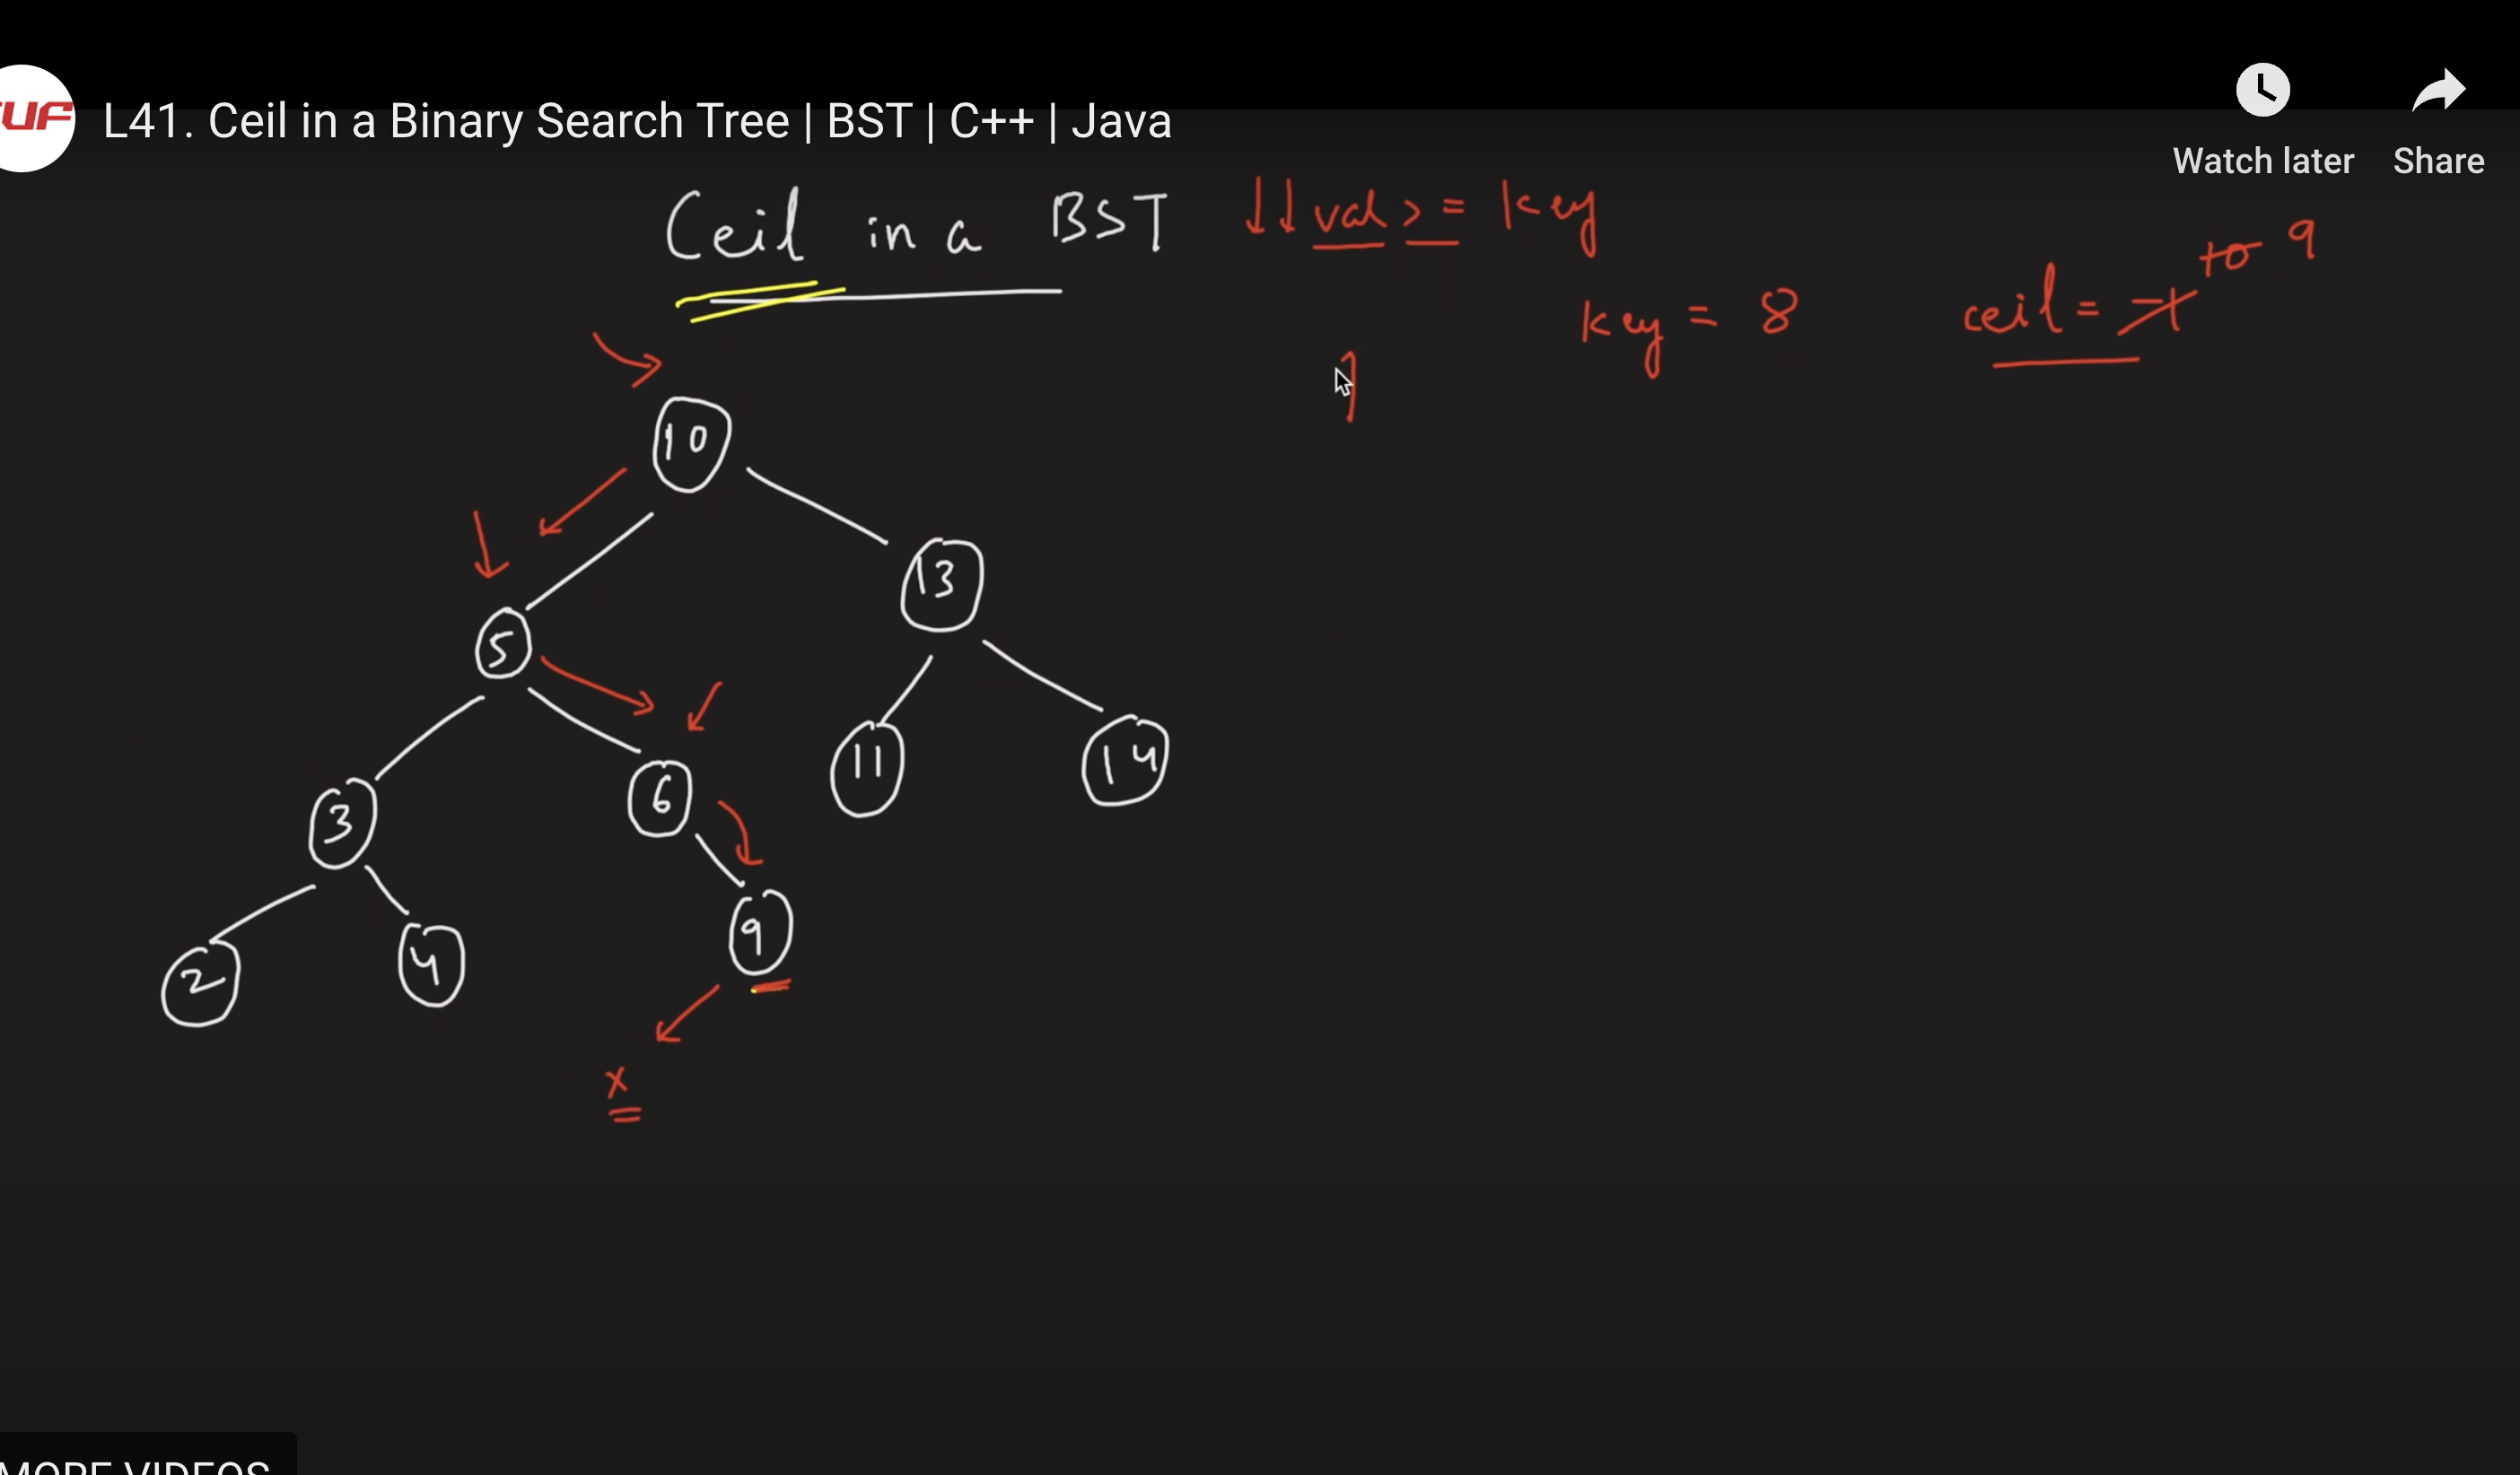 UF L41. Ceil in a Binary Search Tree | BST | C++ | Java
Watch later Share
Ceil in a BST ↓↓ val >= key
key = 8 ceil = -1 10 9
10
13
5
11 14
3 6
9
2 4
x
MORE VIDEOS